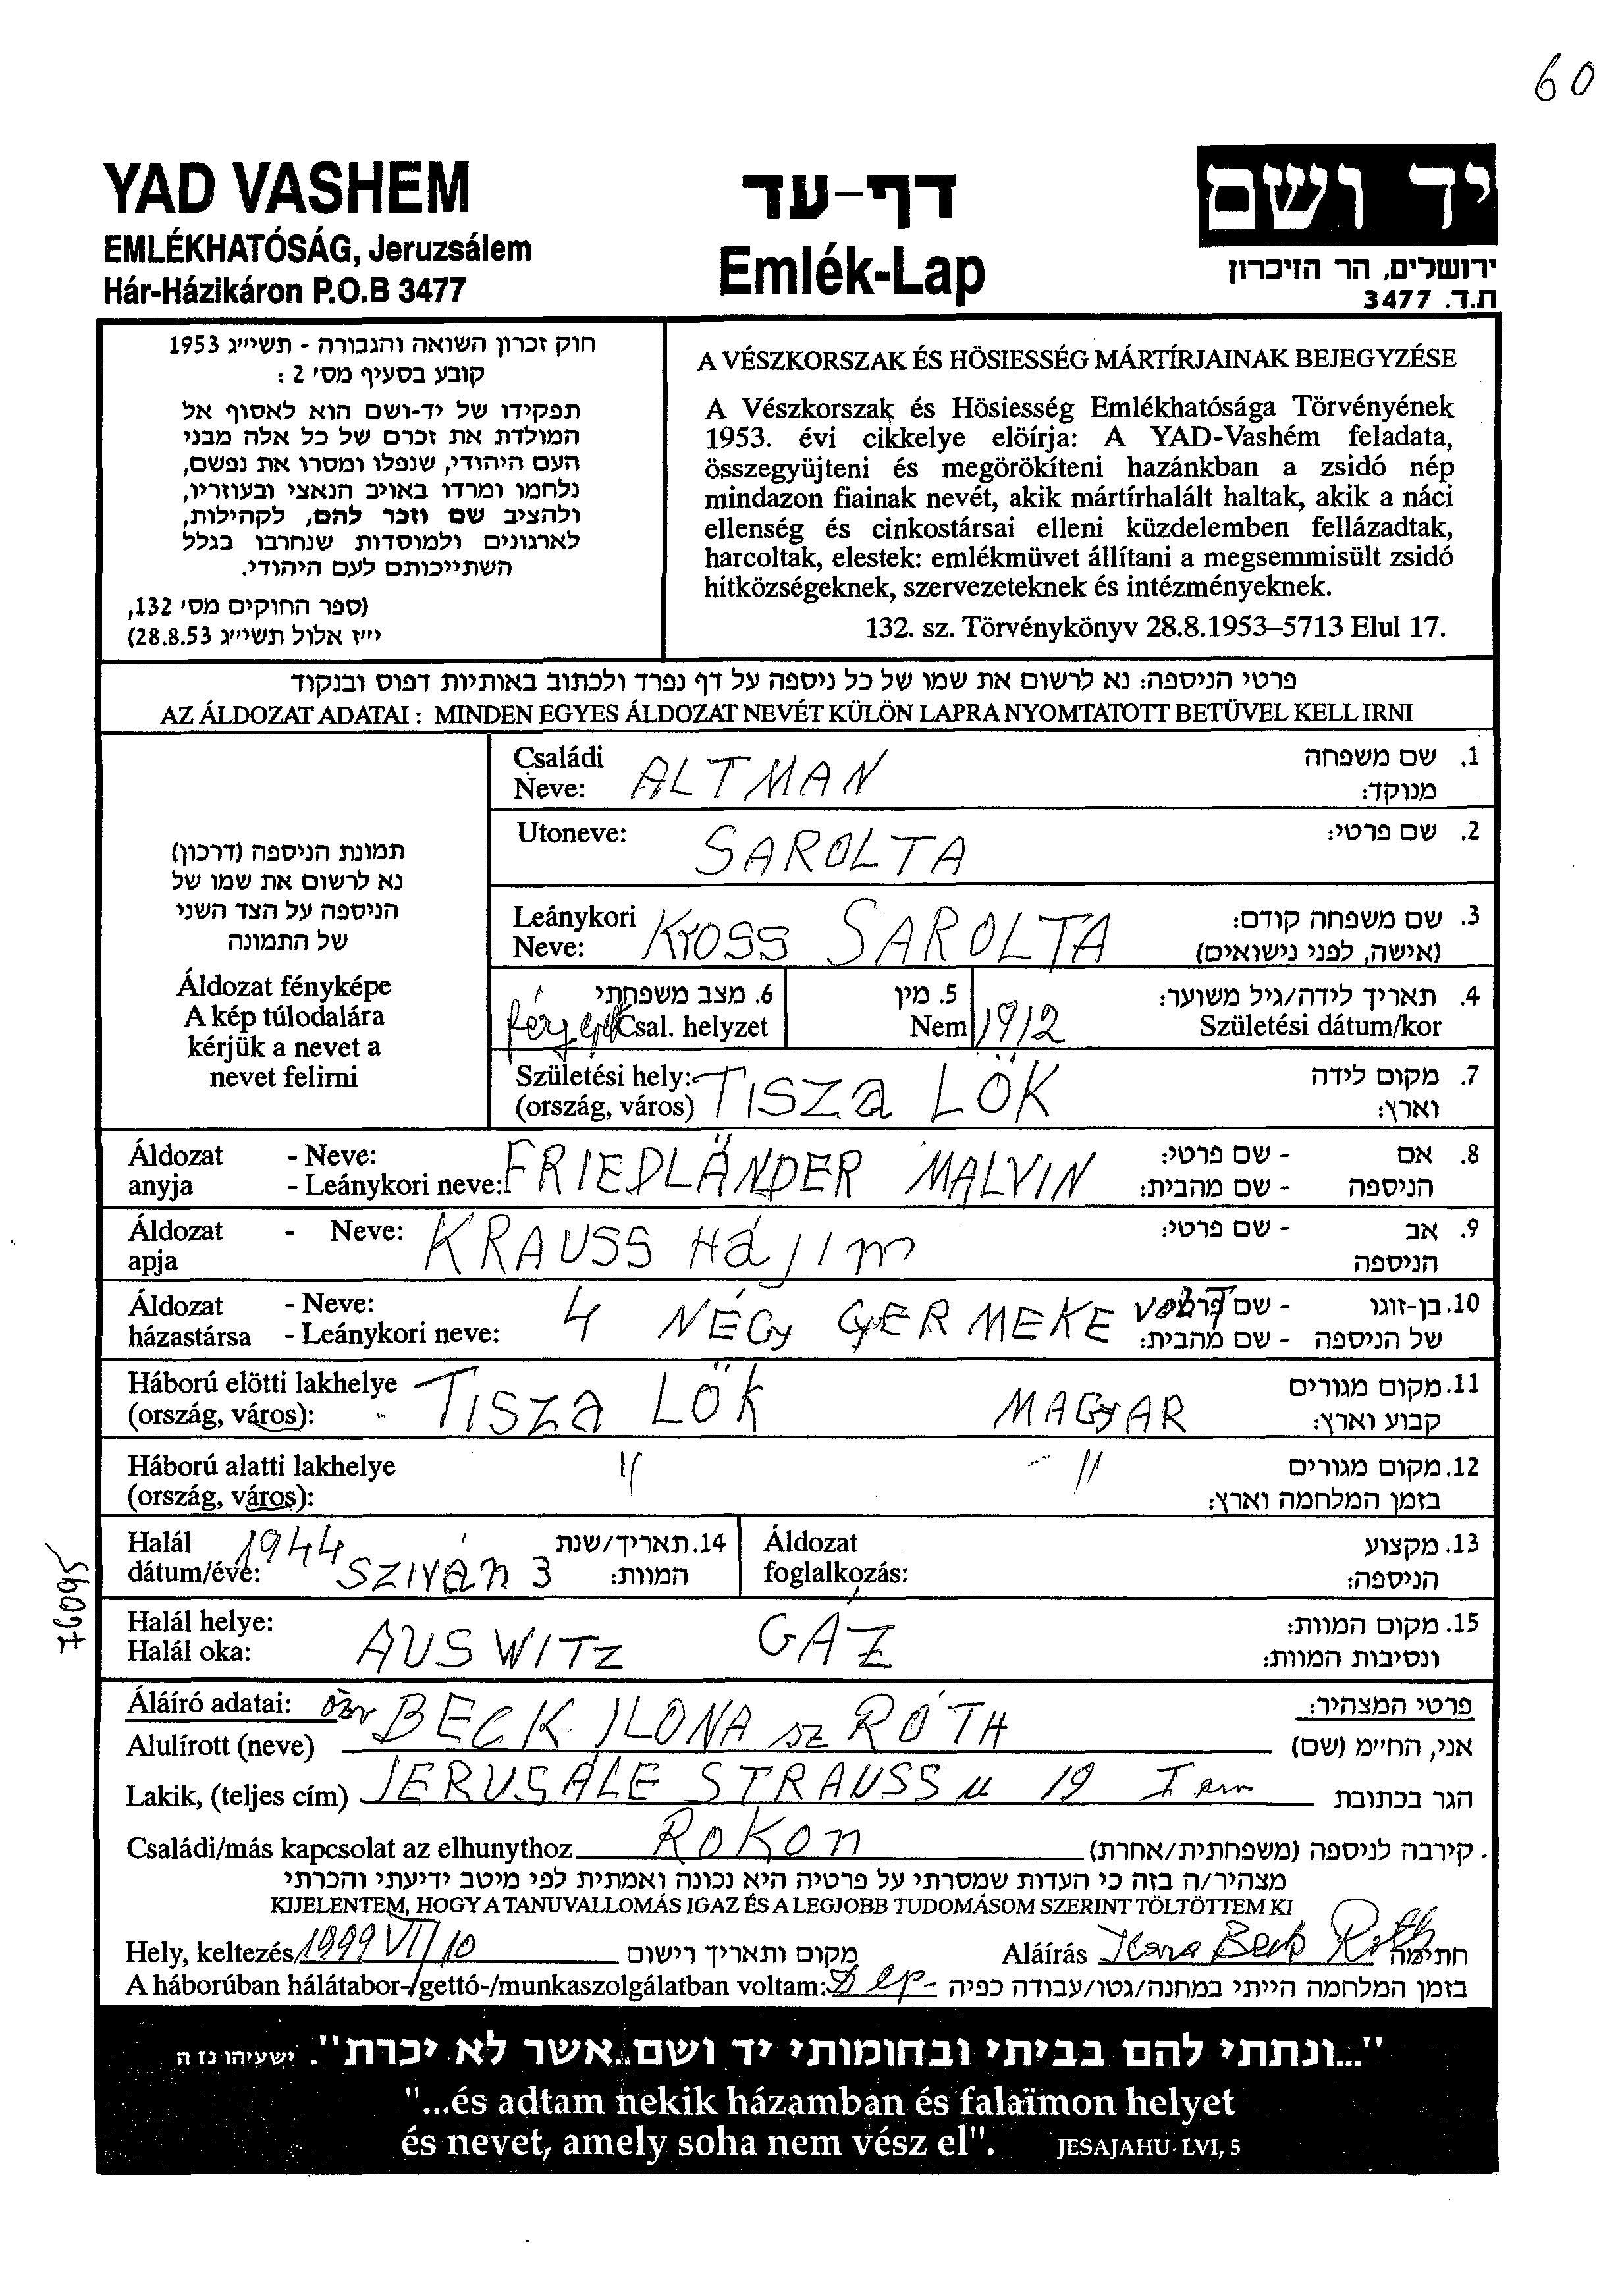 60
YAD VASHEM
EMLÉKHATÓSÁG, Jeruzsálem
Hár-Házikáron P.O.B 3477
דף-עד
Emlék-Lap
יד ושם
ירושלים, הר הזיכרון
ת.ד. 3477
חוק זכרון השואה והגבורה - תשי״ג 1953
קובע בסעיף מס׳ 2 :
תפקידו של יד-ושם הוא לאסוף אל
המולדת את זכרם של כל אלה מבני
העם היהודי, שנפלו ומסרו את נפשם,
נלחמו ומרדו באויב הנאצי ובעוזריו,
ולהציב שם וזכר להם, לקהילות,
לארגונים ולמוסדות שנחרבו בגלל
השתייכותם לעם היהודי.
(ספר החוקים מס׳ 132,
י״ז אלול תשי״ג 28.8.53)
A VÉSZKORSZAK ÉS HÖSIESSÉG MÁRTÍRJAINAK BEJEGYZÉSE
A Vészkorszak és Hösiesség Emlékhatósága Törvényének
1953. évi cikkelye elöírja: A YAD-Vashém feladata,
összegyüjteni és megörökíteni hazánkban a zsidó nép
mindazon fiainak nevét, akik mártírhalált haltak, akik a náci
ellenség és cinkostársai elleni küzdelemben fellázadtak,
harcoltak, elestek: emlékmüvet állítani a megsemmisült zsidó
hitközségeknek, szervezeteknek és intézményeknek.
132. sz. Törvénykönyv 28.8.1953–5713 Elul 17.
פרטי הניספה: נא לרשום את שמו של כל ניספה על דף נפרד ולכתוב באותיות דפוס ובנקוד
AZ ÁLDOZAT ADATAI : MINDEN EGYES ÁLDOZAT NEVÉT KÜLÖN LAPRA NYOMTATOTT BETÜVEL KELL IRNI
תמונת הניספה (דרכון)
נא לרשום את שמו של
הניספה על הצד השני
של התמונה
Áldozat fényképe
A kép túlodalára
kérjük a nevet a
nevet felirni
Családi
Neve: ALTMAN
1. שם משפחה
מנוקד:
Utoneve: SAROLTA
2. שם פרטי:
Leánykori
Neve: KrOSS SAROLTA
3. שם משפחה קודם:
(אישה, לפני נישואים)
6. מצב משפחתי
Csal. helyzet
5. מין
Nem
1912
4. תאריך לידה/גיל משוער:
Születési dátum/kor
Születési hely: TISZa LÖK
(ország, város)
7. מקום לידה
וארץ:
Áldozat - Neve:
anyja - Leánykori neve: FRIEDLÄNDER MALVIN
8. אם - שם פרטי:
הניספה - שם מהבית:
Áldozat - Neve: KRAUSS Hájim
apja
9. אב - שם פרטי:
הניספה
Áldozat - Neve:
házastársa - Leánykori neve: 4 NÉGy GYERMEKE VOLT
10. בן-זוגו - שם פרטי:
של הניספה - שם מהבית:
Háború elötti lakhelye
(ország, város): TISZa LÖK MAGYAR
11. מקום מגורים
קבוע וארץ:
Háború alatti lakhelye
(ország, város): " "
12. מקום מגורים
בזמן המלחמה וארץ:
Halál
dátum/éve: 1944 SZIVán 3
14. תאריך/שנת
המוות:
Áldozat
foglalkozás:
13. מקצוע
הניספה:
Halál helye:
Halál oka: AUSWITZ GÁZ
15. מקום המוות:
ונסיבות המוות:
76095
Áláíró adatai: özv BECK ILONA sz RÓTH
פרטי המצהיר:
Alulírott (neve)
אני, הח״מ (שם)
Lakik, (teljes cím) JERUSÁLE STRAUSS u 19 I em
הגר בכתובת
Családi/más kapcsolat az elhunythoz ROKON
קירבה לניספה (משפחתית/אחרת) .
מצהיר/ה בזה כי העדות שמסרתי על פרטיה היא נכונה ואמתית לפי מיטב ידיעתי והכרתי
KIJELENTEM, HOGY A TANUVALLOMÁS IGAZ ÉS A LEGJOBB TUDOMÁSOM SZERINT TÖLTÖTTEM KI
Hely, keltezés 1999 VI/10 מקום ותאריך רישום
Aláírás Ilona Beck Roth חתימה
A háborúban hálátabor-/gettó-/munkaszolgálatban voltam: בזמן המלחמה הייתי במחנה/גטו/עבודה כפיה
"...ונתתי להם בביתי ובחומותי יד ושם..אשר לא יכרת". ישעיהו נז ה
"...és adtam nekik házamban és falaïmon helyet
és nevet, amely soha nem vész el". JESAJAHU LVI, 5